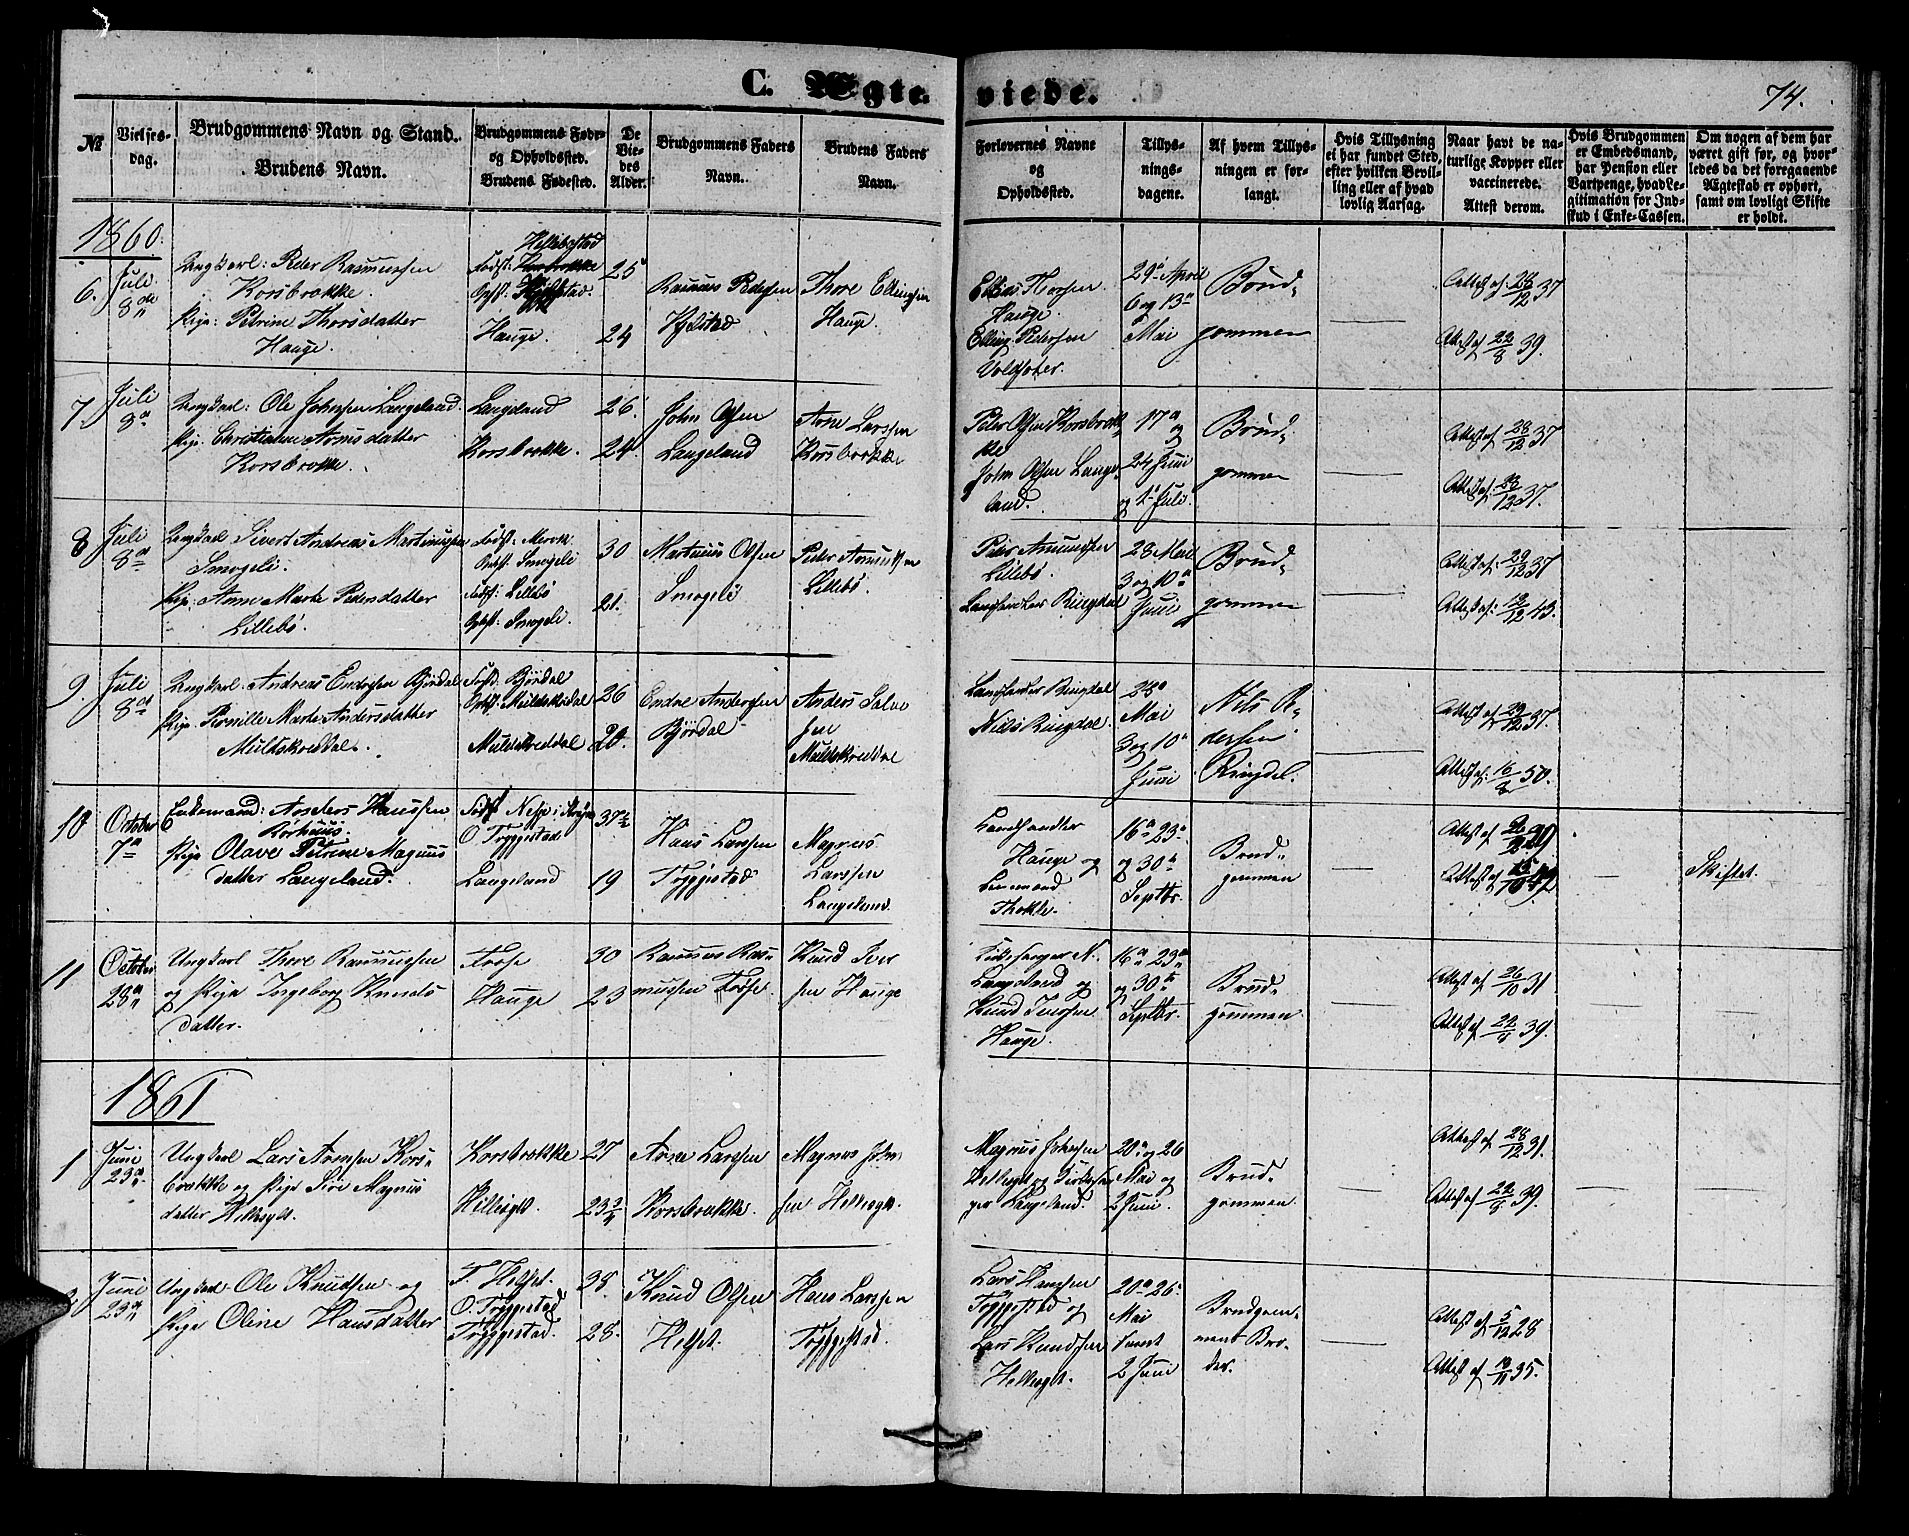 C. Ægte- viede.
74.
№
Vielses-
dag.
Brudgommens Navn og Stand.
Brudens Navn.
Brudgommens Føde-
og Opholdssted.
Brudens Fødested.
De
Vie-
des
Alder.
Brudgommens Faders
Navn.
Brudens Faders
Navn.
Forlovernes Navne
og
Opholdssted.
Tillys-
nings-
dagene.
Af hvem Tillys-
ningen er for-
langt.
Hvis Tillysning
ei har fundet Sted,
efter hvilken Bevil-
ling eller af hvad
lovlig Aarsag.
Naar havt de na-
turlige Kopper eller
vaccinerede.
Attest derom.
Hvis Brudgommen
er Embedsmand,
har Pension eller
Vartpenge, hvad Le-
gitimation for Ind-
skud i Enke-Cassen.
Om nogen af dem har
været gift før, og hvor-
ledes da det foregaaende
Ægteskab er ophørt,
samt om lovligt Skifte
er holdt.
1860.
6.
Juli
8de
Ungkarl: Peder Rasmussen
Korsbrekke.
Pige: Petrine Thoresdatter
Hauge.
Hellebostad
Hauge.
25
24
Rasmus Pedersen
Thore Ellingsen
Hauge.
Hauge.
Elling Pedersen
29de April
6 og 13de
Mai
Brud-
gommen
Attest af 28/12 37
Attest af 22/8 39.
7.
Juli
8de
Ungkarl: Ole Johnsen Langeland.
Pige: Christianne Arnesdatter
Korsbrekke.
Langeland
Korsbrekke.
26.
24.
John Olsen
Langeland
Arne Larsen
Korsbrekke
Peter Olsen Korsbrek-
ke
John Olsen Lange-
land.
17de
og
24 Juni
og 1ste Juli.
Brud-
gommen
Attest af: 28/12 37
Attest af: 23/12 37.
8
Juli
8de
Ungkarl Sivert Andreas Martinussen
Smogeli.
Pige: Anne Marte Pedersdatter
Lillebö.
Födst: Merok
Ophst: Smogeli
Födst: Lillebö
Ophst: Smogeli.
30
21.
Martinus Olsen
Smogeli
Peter Amundsen
Lillebö.
Peter Amundsen
Lillebö.
Landhandler Ringdal
28 Mai
3 og 10de
Juni
Brud-
gommen
Attest af: 29/12 37
Attest af: 13/12 43.
9.
Juli
8de
Ungkarl: Andreas Endresen Björdal
Pige Pernille Marte Andersdatter
Muldskreddal.
Födst. Björdal
Ophst: Muldskreddal
Muldskreddal
26
20.
Endre Andersen
Björdal
Anders Salve
sen
Muldskreddal
Landhandler Ringdal
Nils Ringdal.
28de
Mai
3 og 10de
Juni
Nils
Ringdal.
Attest af 29/12 37.
Attest af: 16/8 50.
10
October
7de
Enkemand:
Pige Olave Petrine Magnus
datter Langeland.
O. Tryggestad
Langeland
37½
19
Hans Larssen
Tryggestad
Magnus
Larssen
Langeland.
Landhandler
Hauge og
Lensmand
16de 23de
og 30te
Septbr.
Brud-
gommen
Attest af
Attest af
Skiftet.
11
October
28de
Ungkarl Thore Rasmussen
og Pige Ingeborg Knuds
datter.
Hauge
30
23
Rasmus Ras-
mussen
Knud Iver
sen Hauge
Kirkesanger N.
Langeland og
Knud Iversen
Hauge.
16de 23de
og 30te
Septbr.
Brud-
gommen.
Attest af 26/10 31
Attest af 39.
1861
1
Juni
23de
Ungkarl Lars Arnesen Kors-
brekke og Pige Siri Magnus
datter Hellesylt.
Korsbrekke
Hellesylt.
27
23¾
Arne Larssen
Korsbrekke.
Magnus John
sen Hellesylt.
Magnus Johnsen
Hellesylt og Kirkesan
ger Langeland.
20de og 26
Mai og
2 Juni.
Brud-
gommen.
Attest af 28/12 31.
Attest af 22/8 39.
2.
Juni
23de
Ungkarl Ole Knudsen og
Pige Oline Hansdatter
F. Helset.
O. Tryggestad
Tryggestad.
38.
28.
Knud Olsen
Helset.
Hans Larssen
Tryggestad.
Lars Hanssen
Tryggestad og
Lars Knudsen
Hellesylt.
20de 26de
Mai
samt
2 Juni
Brudgom-
mens Bro-
der.
Attest af 5/12 28
Attest af 35.